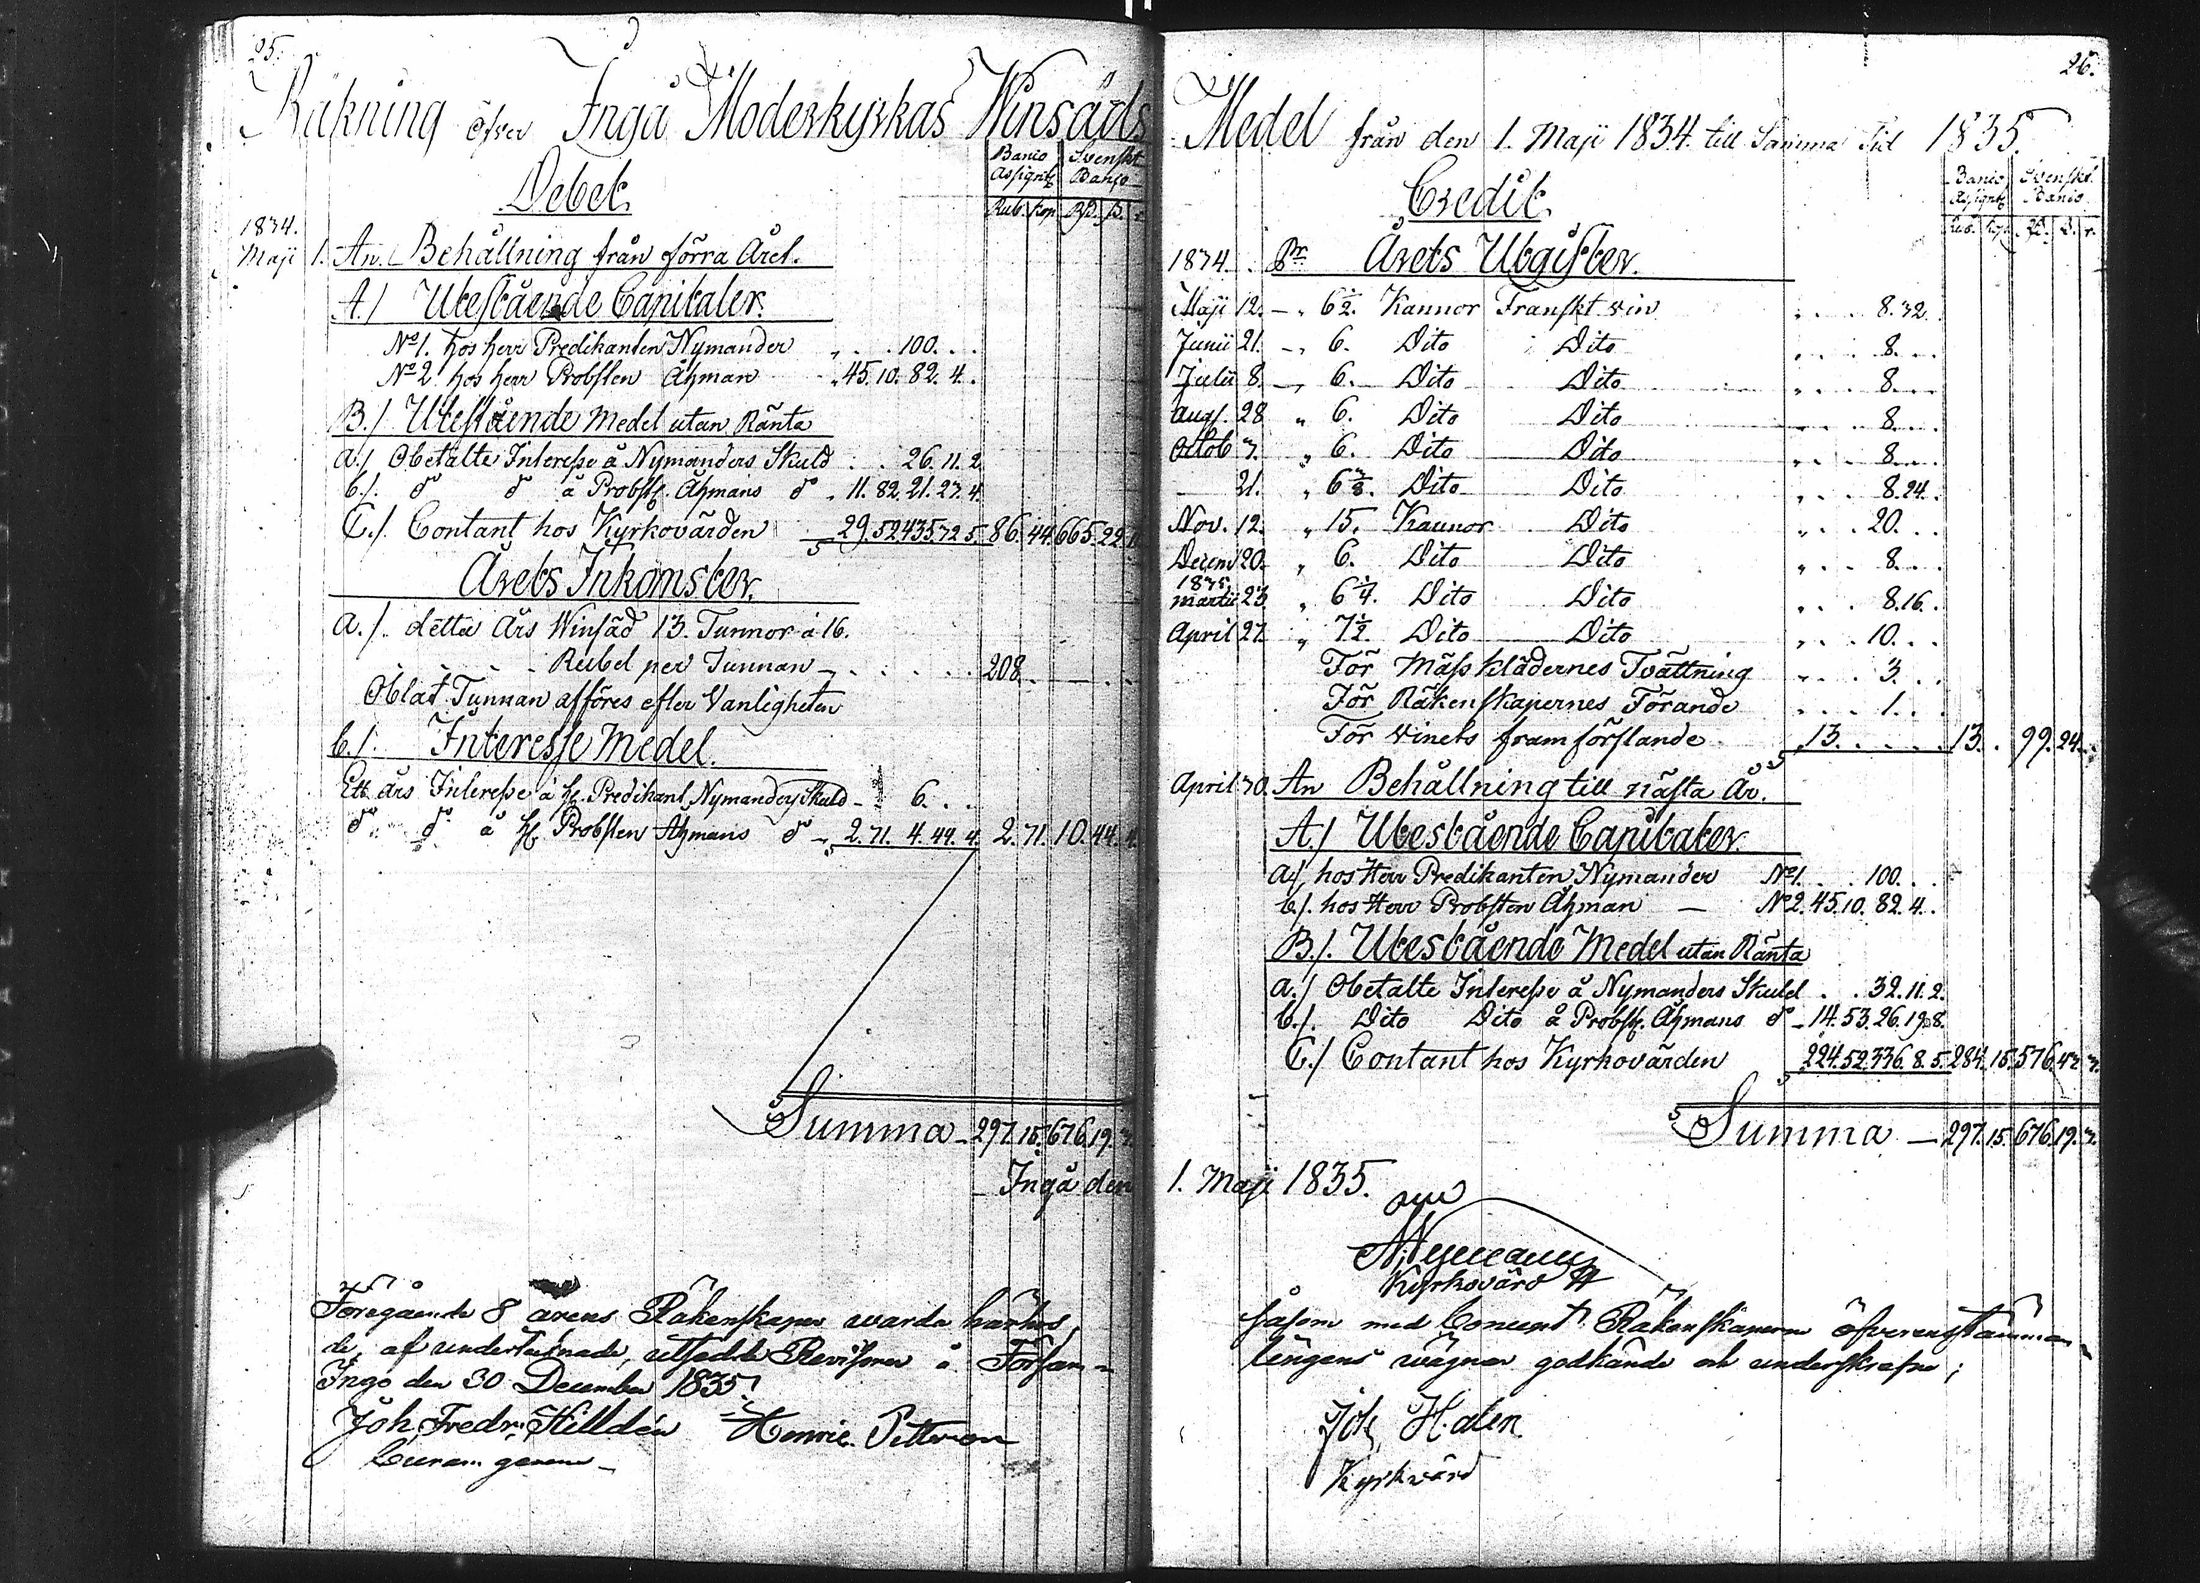 25.
Räkning öfver Ingå Moderkyrkas Winsäds
Debet.
Banco Assignr Svenskt Banco
Rub. Kop. Rd. ß. r.
1834.
Maji 1. An. Behållning från förra Året.
A./ Utestående Capitaler.
No 1. hos herr Predikanten Nymander „ . . 100. . .
No 2. hos herr Probsten Åhman „ 45. 10. 82. 4.
B./ Utestående Medel utan Ränta
a./ Obetalte Interesse å Nymanders Skuld . . 26. 11. 2
b./. do do å Probst. Åhmans do „ 11. 82. 21. 27. 4.
C./ Contant hos Kyrkovärden 29. 52 435. 72 5. 86. 44. 665. 22.
Årets Inkomster.
a./. detta Års Winsäd 13. Tunnor à 16.
Rubel per Tunnan 208.
Oblat Tunnan afföres efter Vanligheten
b./. Interesse Medel.
Ett års Interesse å H. Predikant Nymanders Skuld — 6. . .
do do å H. Probsten Åhmans do — 2. 71. 4. 44. 4. 2. 71. 10. 44. 4.
Summa — 297. 15. 676. 19. 3.
Ingå den
Föregående 8 årens Räkenskaper warda härhos,
de, af undertecknade, utsedde Revisorer å Försam-
Ingo den 30 December 1835.
Joh. Fredr. Hilldén Henric Petterson
26.
Medel från den 1. Maji 1834. till Samma Tid 1835.
Credit.
Banco Assignr Svenskt Banco
Rub. Kop. Rd. ß. r.
1834. Pr Årets Utgifter.
Maji 12. — „ 6½. Kannor Franskt vin „ . . . 8. 32.
Junii 21. — „ 6. Dito Dito „ . . . 8. . .
Julii 8. — „ 6. Dito Dito „ . . . 8. . .
Augs. 28 „ 6. Dito Dito „ . . . 8. . .
Octob 7. „ 6. Dito Dito „ . . . 8. . .
— 21. „ 6⅜. Dito Dito „ . . . 8. 24.
Nov. 12. „ 15. Kannor Dito „ . . . 20. . .
Decem 20. „ 6. Dito Dito „ . . . 8. . .
1835.
Martii 23 „ 6¼. Dito Dito „ . . . 8. 16.
April 27. „ 7½. Dito Dito „ . . . 10. . .
För Mässklädernes Tvättning „ . . . 3. . .
För Räkenskapernes Förande . . . . 1. . .
För vinets framförslande 13. . . . . 13. . 99. 24.
April 30. An Behållning till nästa År.
A./ Utestående Capitaler.
a./, hos Herr Predikanten Nymander No 1. . . 100. . .
b./. hos Herr Probsten Åhman — No 2. 45. 10. 82. 4.
B./. Utestående Medel utan Ränta
a./ Obetalte Interesse å Nymanders Skuld . . 32. 11. 2.
b./. Dito Dito å Probst. Åhmans do — 14. 53. 26. 19. 8.
C./ Contant hos Kyrkovärden 224. 52 336. 8. 5. 284. 15. 576. 43 3.
Summa — 297. 15. 676. 19. 3.
1. Maji 1835.
Kyrkovärd
såsom med Concept Räkenskaperne öfverensstämman-
lingens wägnar godkände och underskrefne;
Joh. Halen.
Kyrkvärd